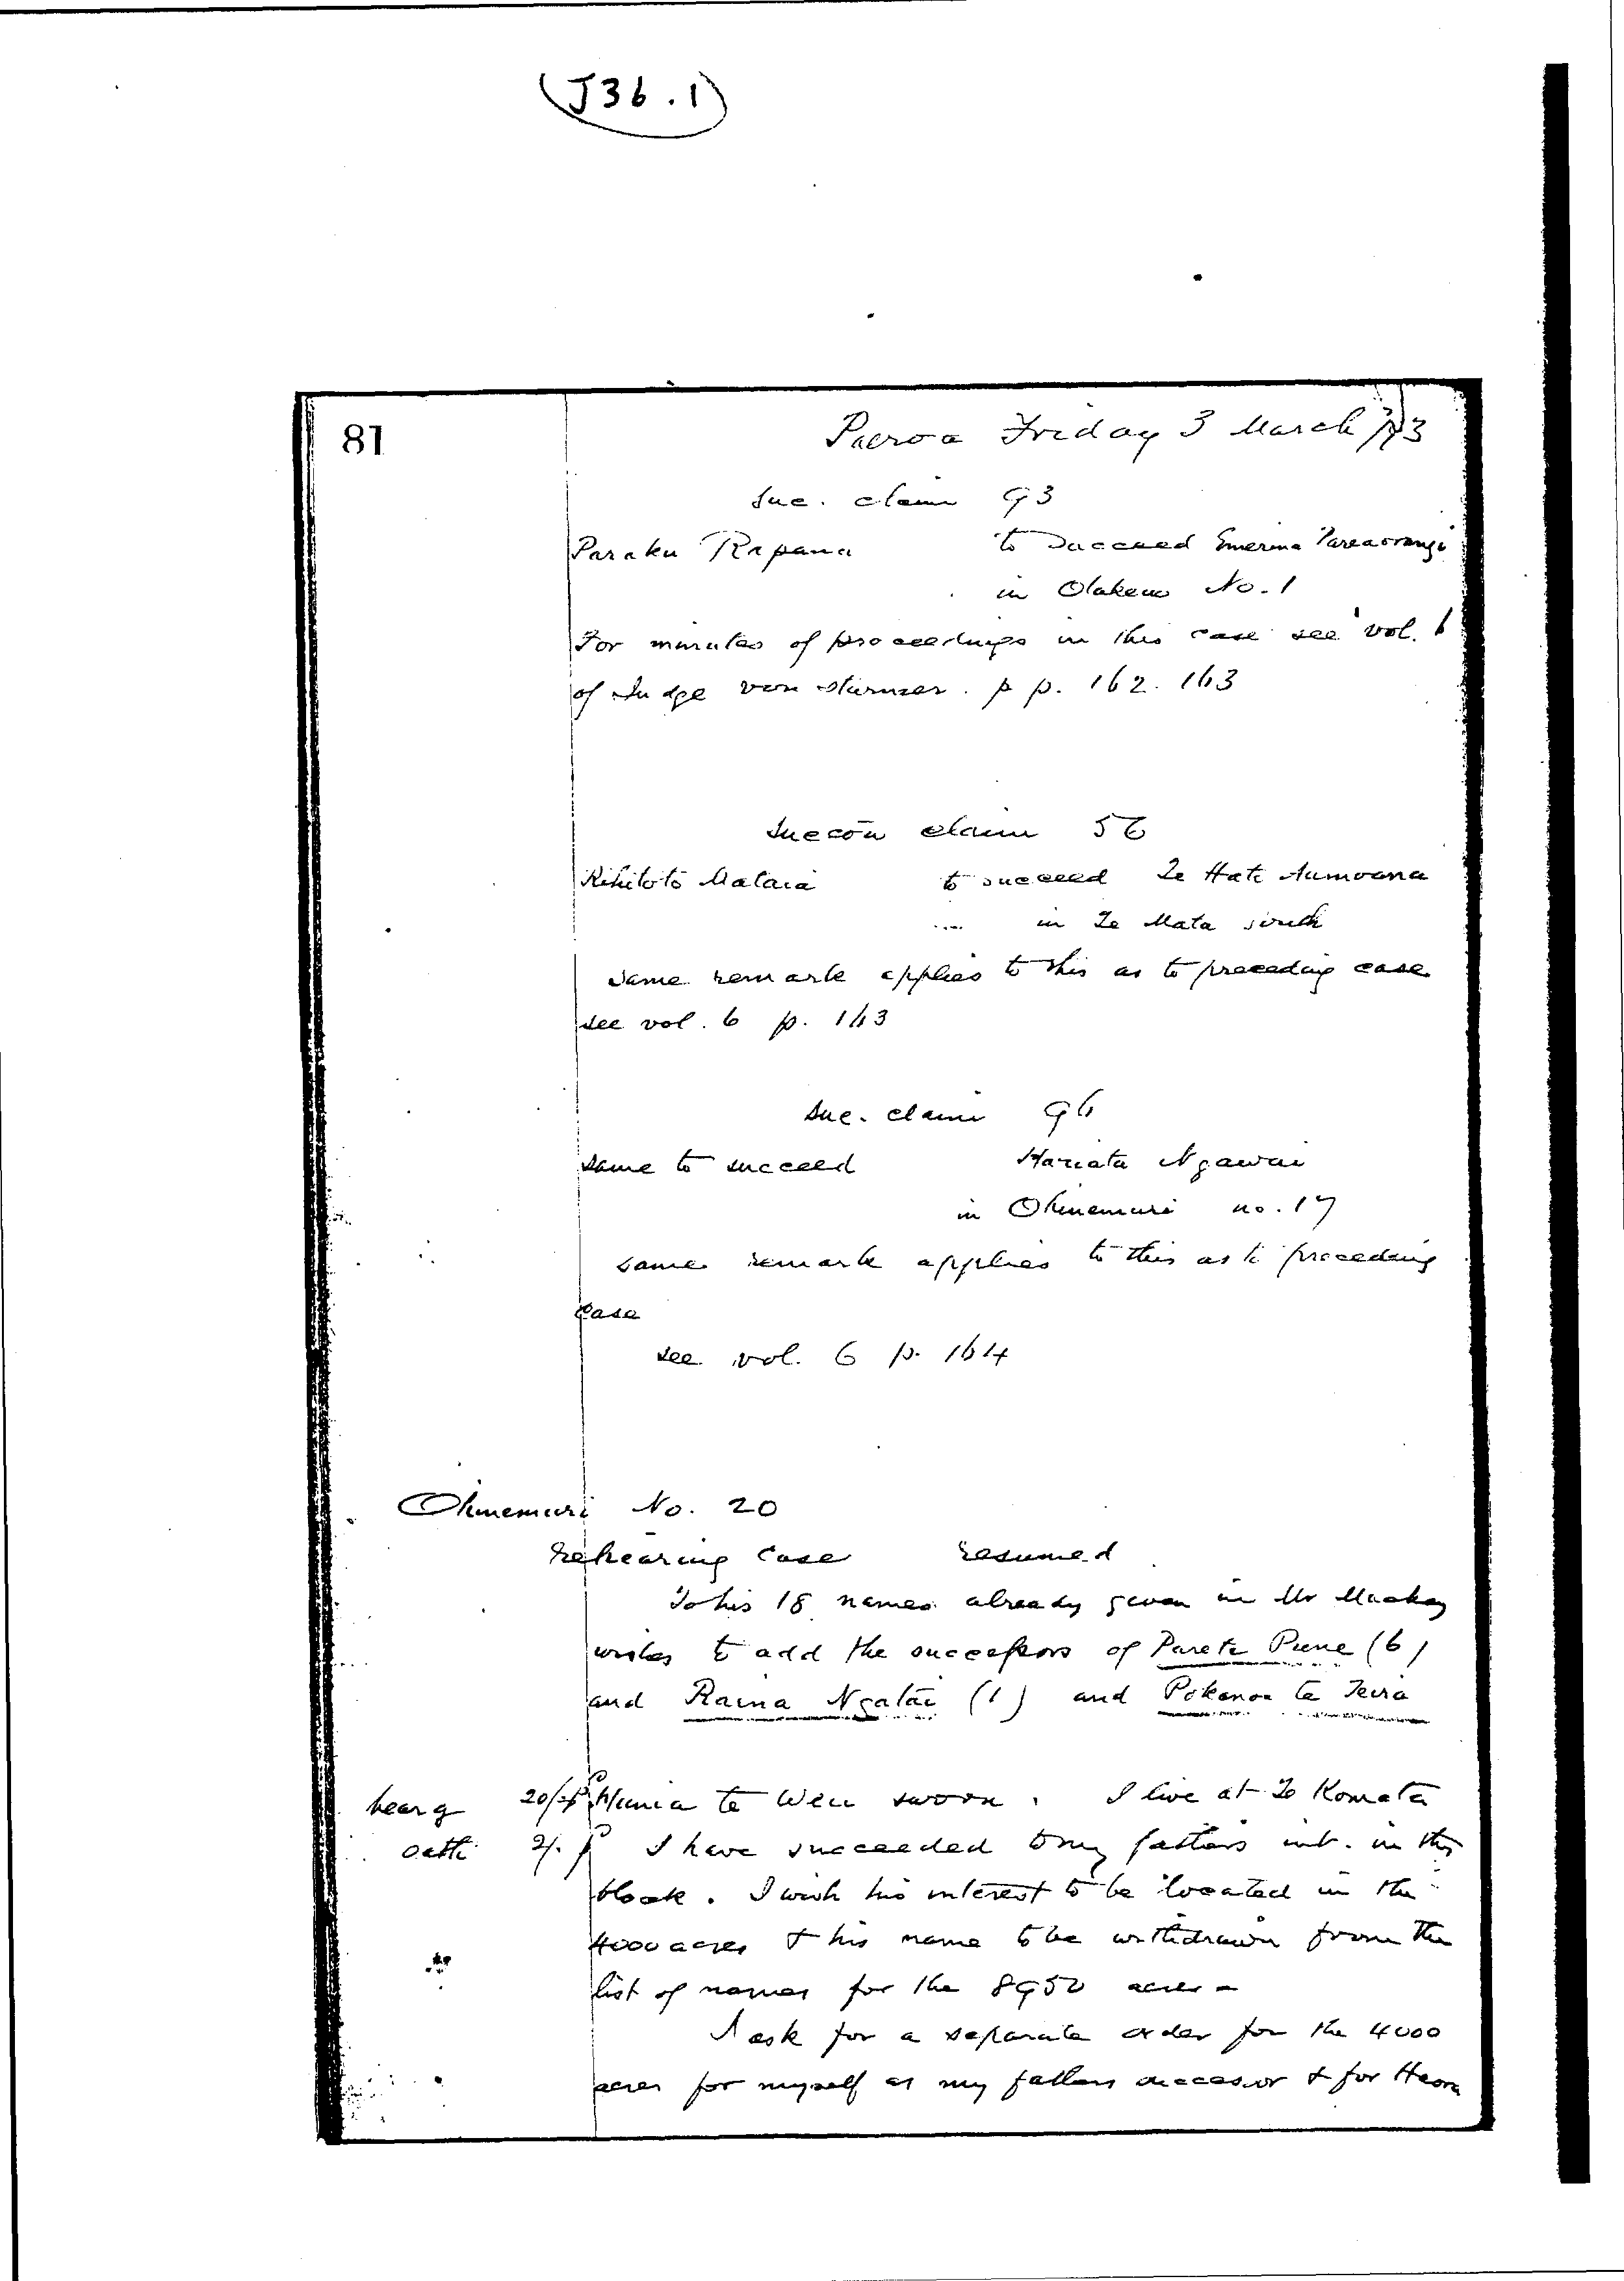 (J36.1)
81
Paeroa Friday 3 March 93
Suc. claim 93
Paraku Rapana to succeed Emerina
in Otakeao No. 1
For minutes of proceedings in this case see vol. 6
of Judge von Sturmer. p p. 162. 163
Succon claim 56
Rihitoto Mataia to succeed Te Hate Aumoana
in Te Mata south
Same remark applies to this as to preceding case
see vol. 6 p. 163
Suc. claim 96
Same to succeed Hariata Ngawai
in Ohinemuri no. 17
same remark applies to this as to preceding
case
see vol. 6 p. 164
Ohinemuri No. 20
Rehearing Case resumed
To his 18 names already given in Mr Mackay
wishes to add the successors of Parete Pune (6)
and Raina Ngatai (1) and Pokonoa te Teira
hearg 20/- Hunia te Weu sworn. I live at Te Komata
oath 2/. I have succeeded to my fathers int. in this
block. I wish his interest to be located in the
4000 acres & his name to be withdrawn from the
list of names for the 8950 acres -
I ask for a separate order for the 4000
acres for myself as my fathers successor & for